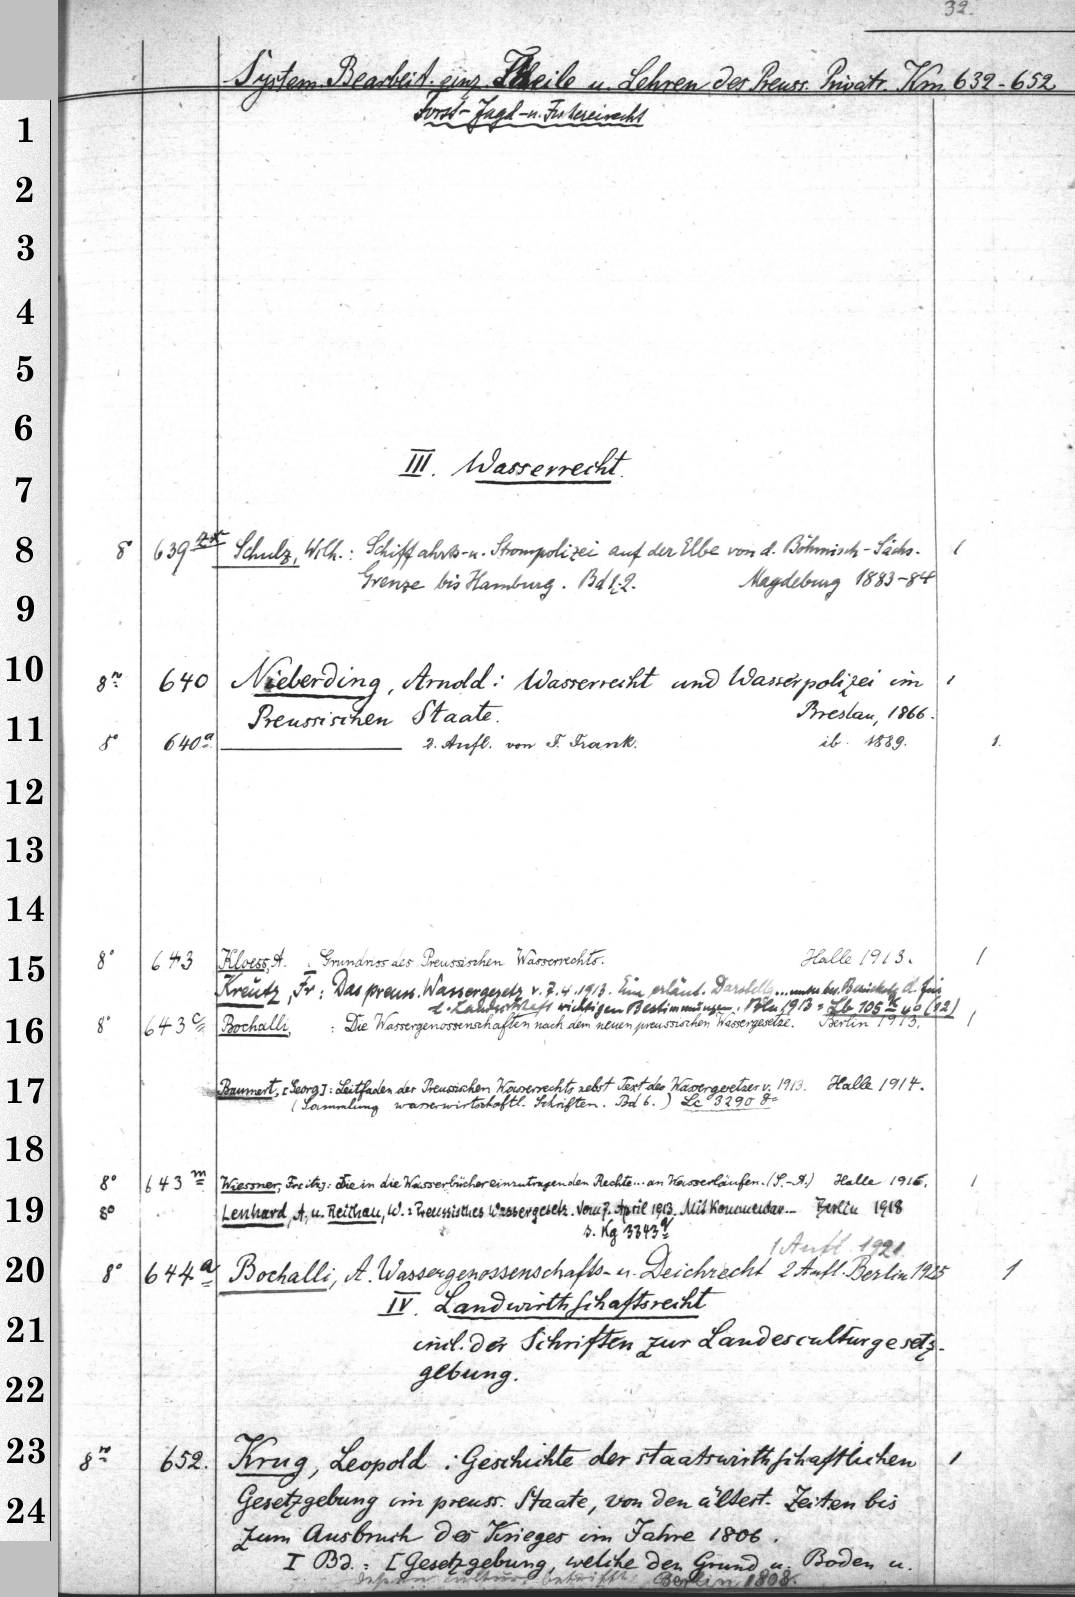 32.
System. Bearbeit. einz. Theile u. Lehren des Preuss. Privatr. Km 632-652
Forst- Jagd- u. Fischereirecht
1
2
3
4
5
6
III. Wasserrecht.
7
8 8° 639 Schulz, Wilh.: Schiffahrts- u. Strompolizei auf der Elbe von d. Böhmisch-Sächs. 1
Grenze bis Hamburg. Bd 1,2. Magdeburg 1883-84
9
10 8º 640 Nieberding, Arnold: Wasserrecht und Wasserpolizei im 1
Preussischen Staate. Breslau, 1866.
11 8° 640a 2. Aufl. von F. Frank. ib. 1889. 1.
12
13
14
15 8° 643 Kloess, A. : Grundriss des Preussischen Wasserrechts. Halle 1913. 1
Kreutz, Fr: Das preuss. Wassergesetz v. 7.4.1913. Eine erläut. Darstellg ... unter bes. Berücks. d. für
d. Landwirtschaft wichtigen Bestimmungen. Bln 1913 = Lb 105 (92)
16 8° 643c Bochalli, : Die Wassergenossenschaften nach dem neuen preussischen Wassergesetze. Berlin 1913. 1
17 Baumert, [Georg]: Leitfaden des Preussischen Wasserrechts nebst Text des Wassergesetzes v. 1913. Halle 1914.
(Sammlung wasserwirtschaftl. Schriften. Bd 6.) Lc 3290 8°
18
8° 643m Wiessner, Freitag: Die in die Wasserbücher einzutragenden Rechte... an Wasserläufen. (S.-A.) Halle 1916. 1
19 8° Lenhard, A, u. Reichau, W.: Preussisches Wassergesetz. Vom 7. April 1913. Mit Kommentar... Berlin 1918
s. Kg 3343
1 Aufl. 1921.
20 8° 644a Bochalli, A. Wassergenossenschafts- u. Deichrecht 2 Aufl. Berlin 1925 1
IV. Landwirthschaftsrecht
21 incl. der Schriften zur Landesculturgesetz-
22 gebung.
23 8º 652. Krug, Leopold : Geschichte der staatswirthschaftlichen 1
24 Gesetzgebung im preuss. Staate, von den ältest. Zeiten bis
zum Ausbruch des Krieges im Jahre 1806.
I Bd.: [Gesetzgebung, welche den Grund u. Boden u.
dessen Cultur betrifft. Berlin 1808.